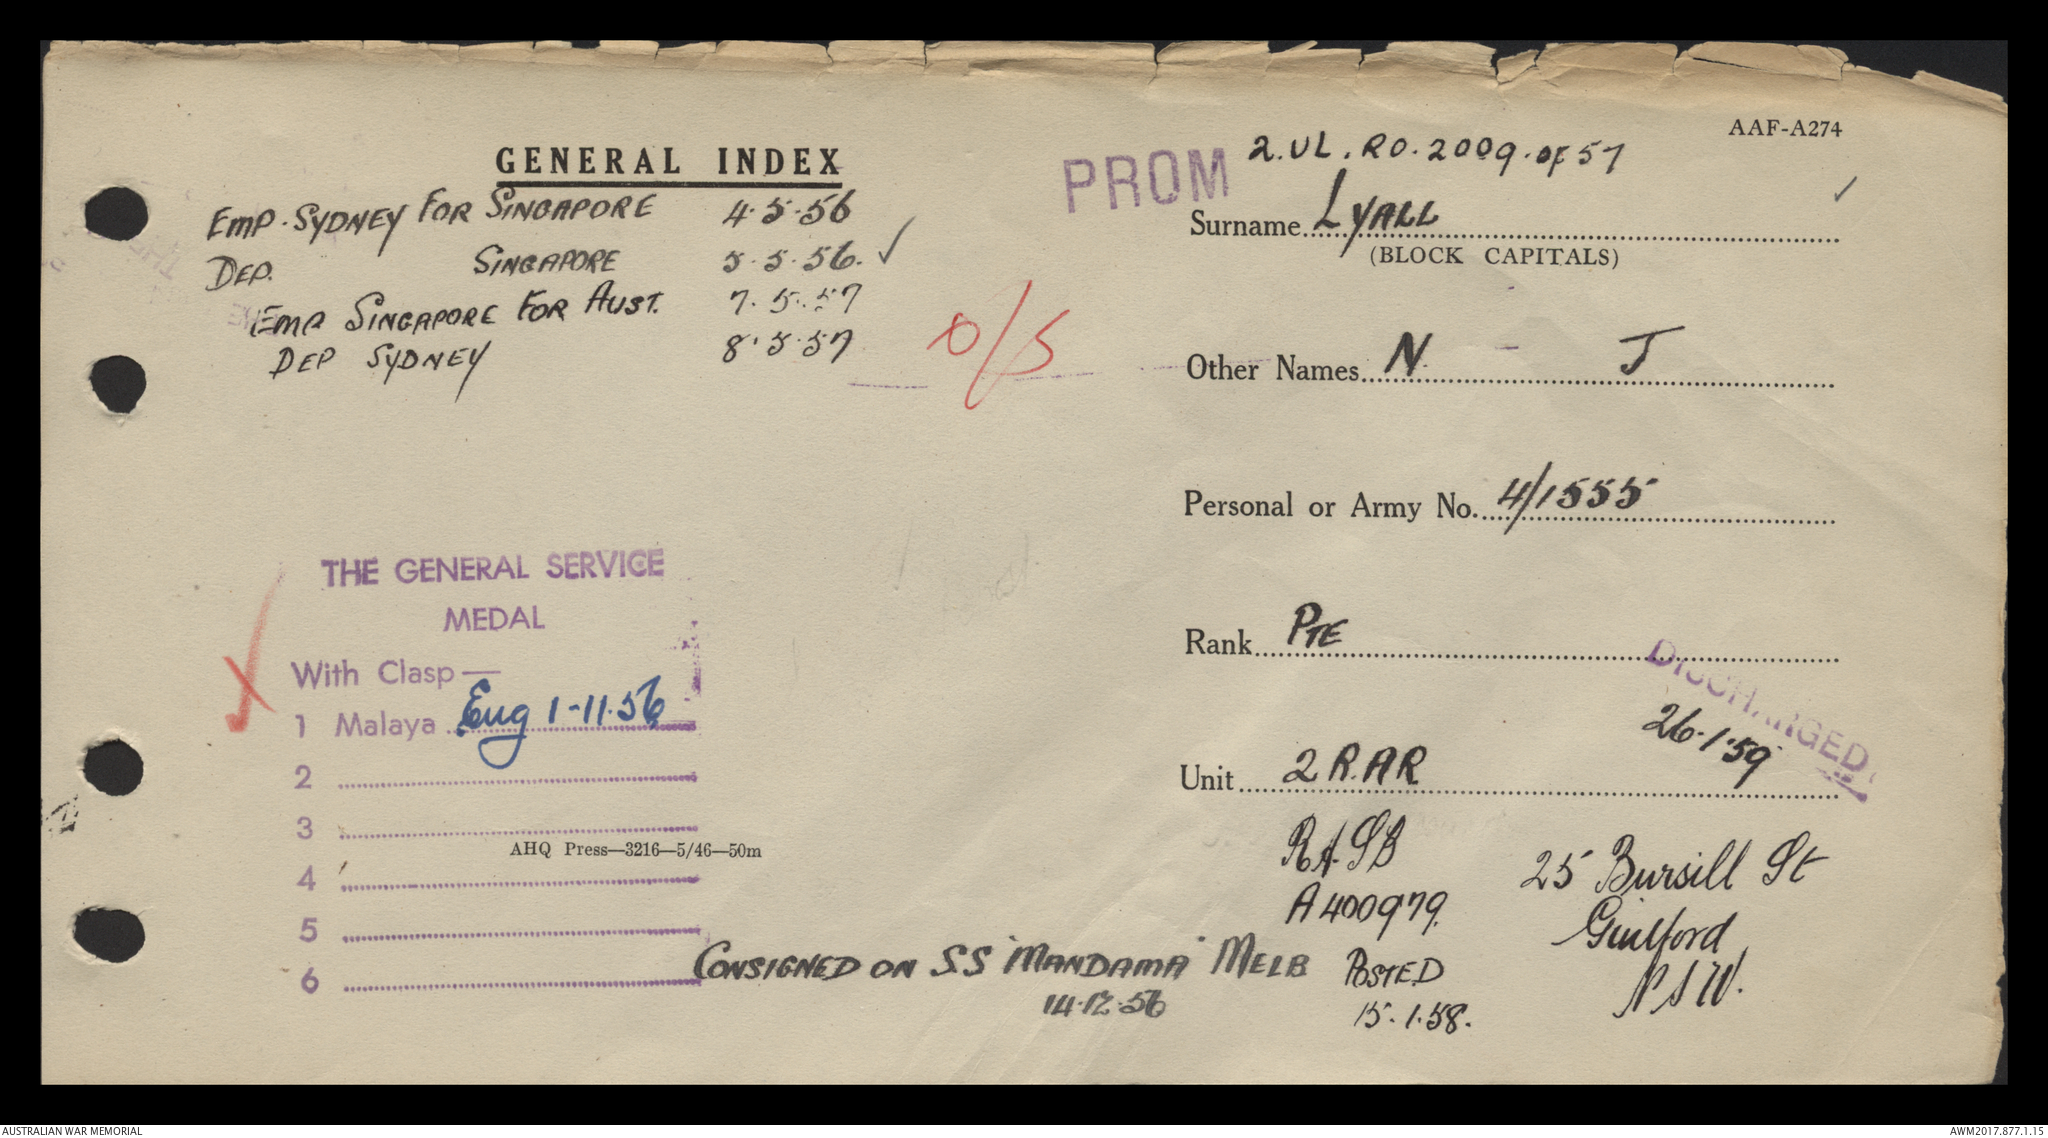 AAF-A274
GENERAL INDEX
EMP. SYDNEY FOR SINGAPORE 4.5.56
DEP. SINGAPORE 5.5.56.
EMP SINGAPORE FOR AUST. 7.5.57
DEP SYDNEY 8.5.57
O/S
PROM 2.VL.RO.2009.of 57
Surname LYALL
(BLOCK CAPITALS)
Other Names N. J
Personal or Army No. 4/1555
Rank PTE
DISCHARGED
26.1.59
Unit 2 R.AR
25 Bursill St
Guilford
NSW.
A400979.
POSTED
15.1.58.
THE GENERAL SERVICE
MEDAL
With Clasp—
1 Malaya Eng 1-11.56
2
3
AHQ Press—3216—5/46—50m
4
5
6
CONSIGNED ON SS "MANDAMA" MELB
14.12.56
AUSTRALIAN WAR MEMORIAL
AWM2017.877.1.15